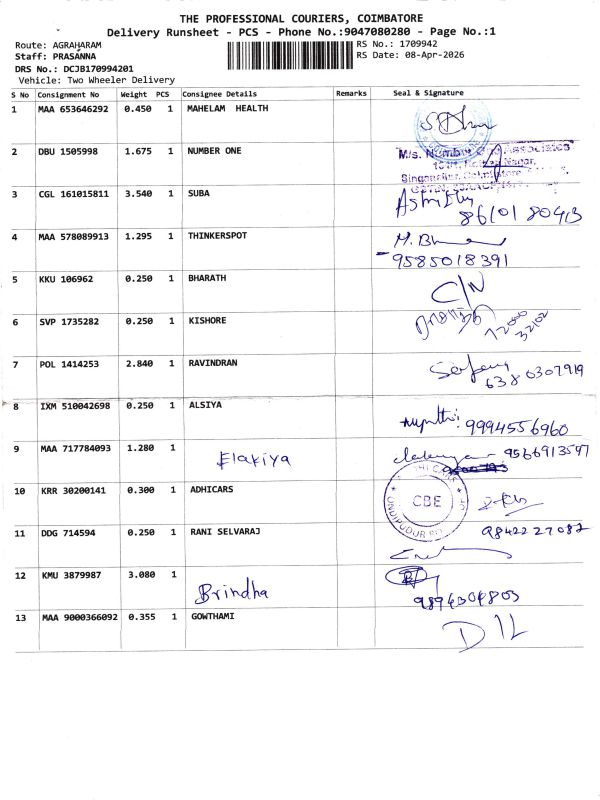 THE PROFESSIONAL COURIERS, COIMBATORE
Delivery Runsheet - PCS - Phone No.:9047080280 - Page No.:1
Route: AGRAHARAM
RS No.: 1709942
Staff: PRASANNA
RS Date: 08-Apr-2026
DRS No.: DCJB170994201
Vehicle: Two Wheeler Delivery
S No Consignment No Weight PCS Consignee Details Remarks Seal & Signature
1 MAA 653646292 0.450 1 MAHELAM HEALTH
2 DBU 1505998 1.675 1 NUMBER ONE
M/s. Number One Associates
3 CGL 161015811 3.540 1 SUBA
86101 80413
4 MAA 578089913 1.295 1 THINKERSPOT
9585018391
5 KKU 106962 0.250 1 BHARATH
C/N
6 SVP 1735282 0.250 1 KISHORE
7 POL 1414253 2.840 1 RAVINDRAN
6380307919
8 IXM 510042698 0.250 1 ALSIYA
9994556960
9 MAA 717784093 1.280 1 Elakiya
9566913597
10 KRR 30200141 0.300 1 ADHICARS
CBE
11 DDG 714594 0.250 1 RANI SELVARAJ
9842227087
12 KMU 3879987 3.080 1 Brindha
9894304803
13 MAA 9000366092 0.355 1 GOWTHAMI
D/L